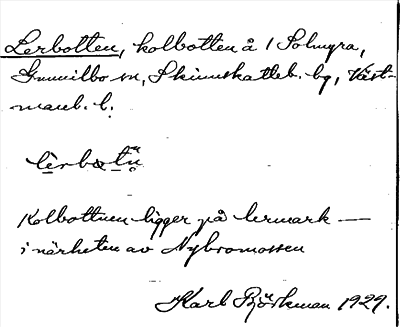 Lerbotten, kolbotten å 1 Solmyra,
Gunnilbo sn, Skinnskatteb. bg, Väst-
manl. l.
Kolbottnen ligger på lermark —
i närheten av Nybromossen
Karl Björkman 1929.